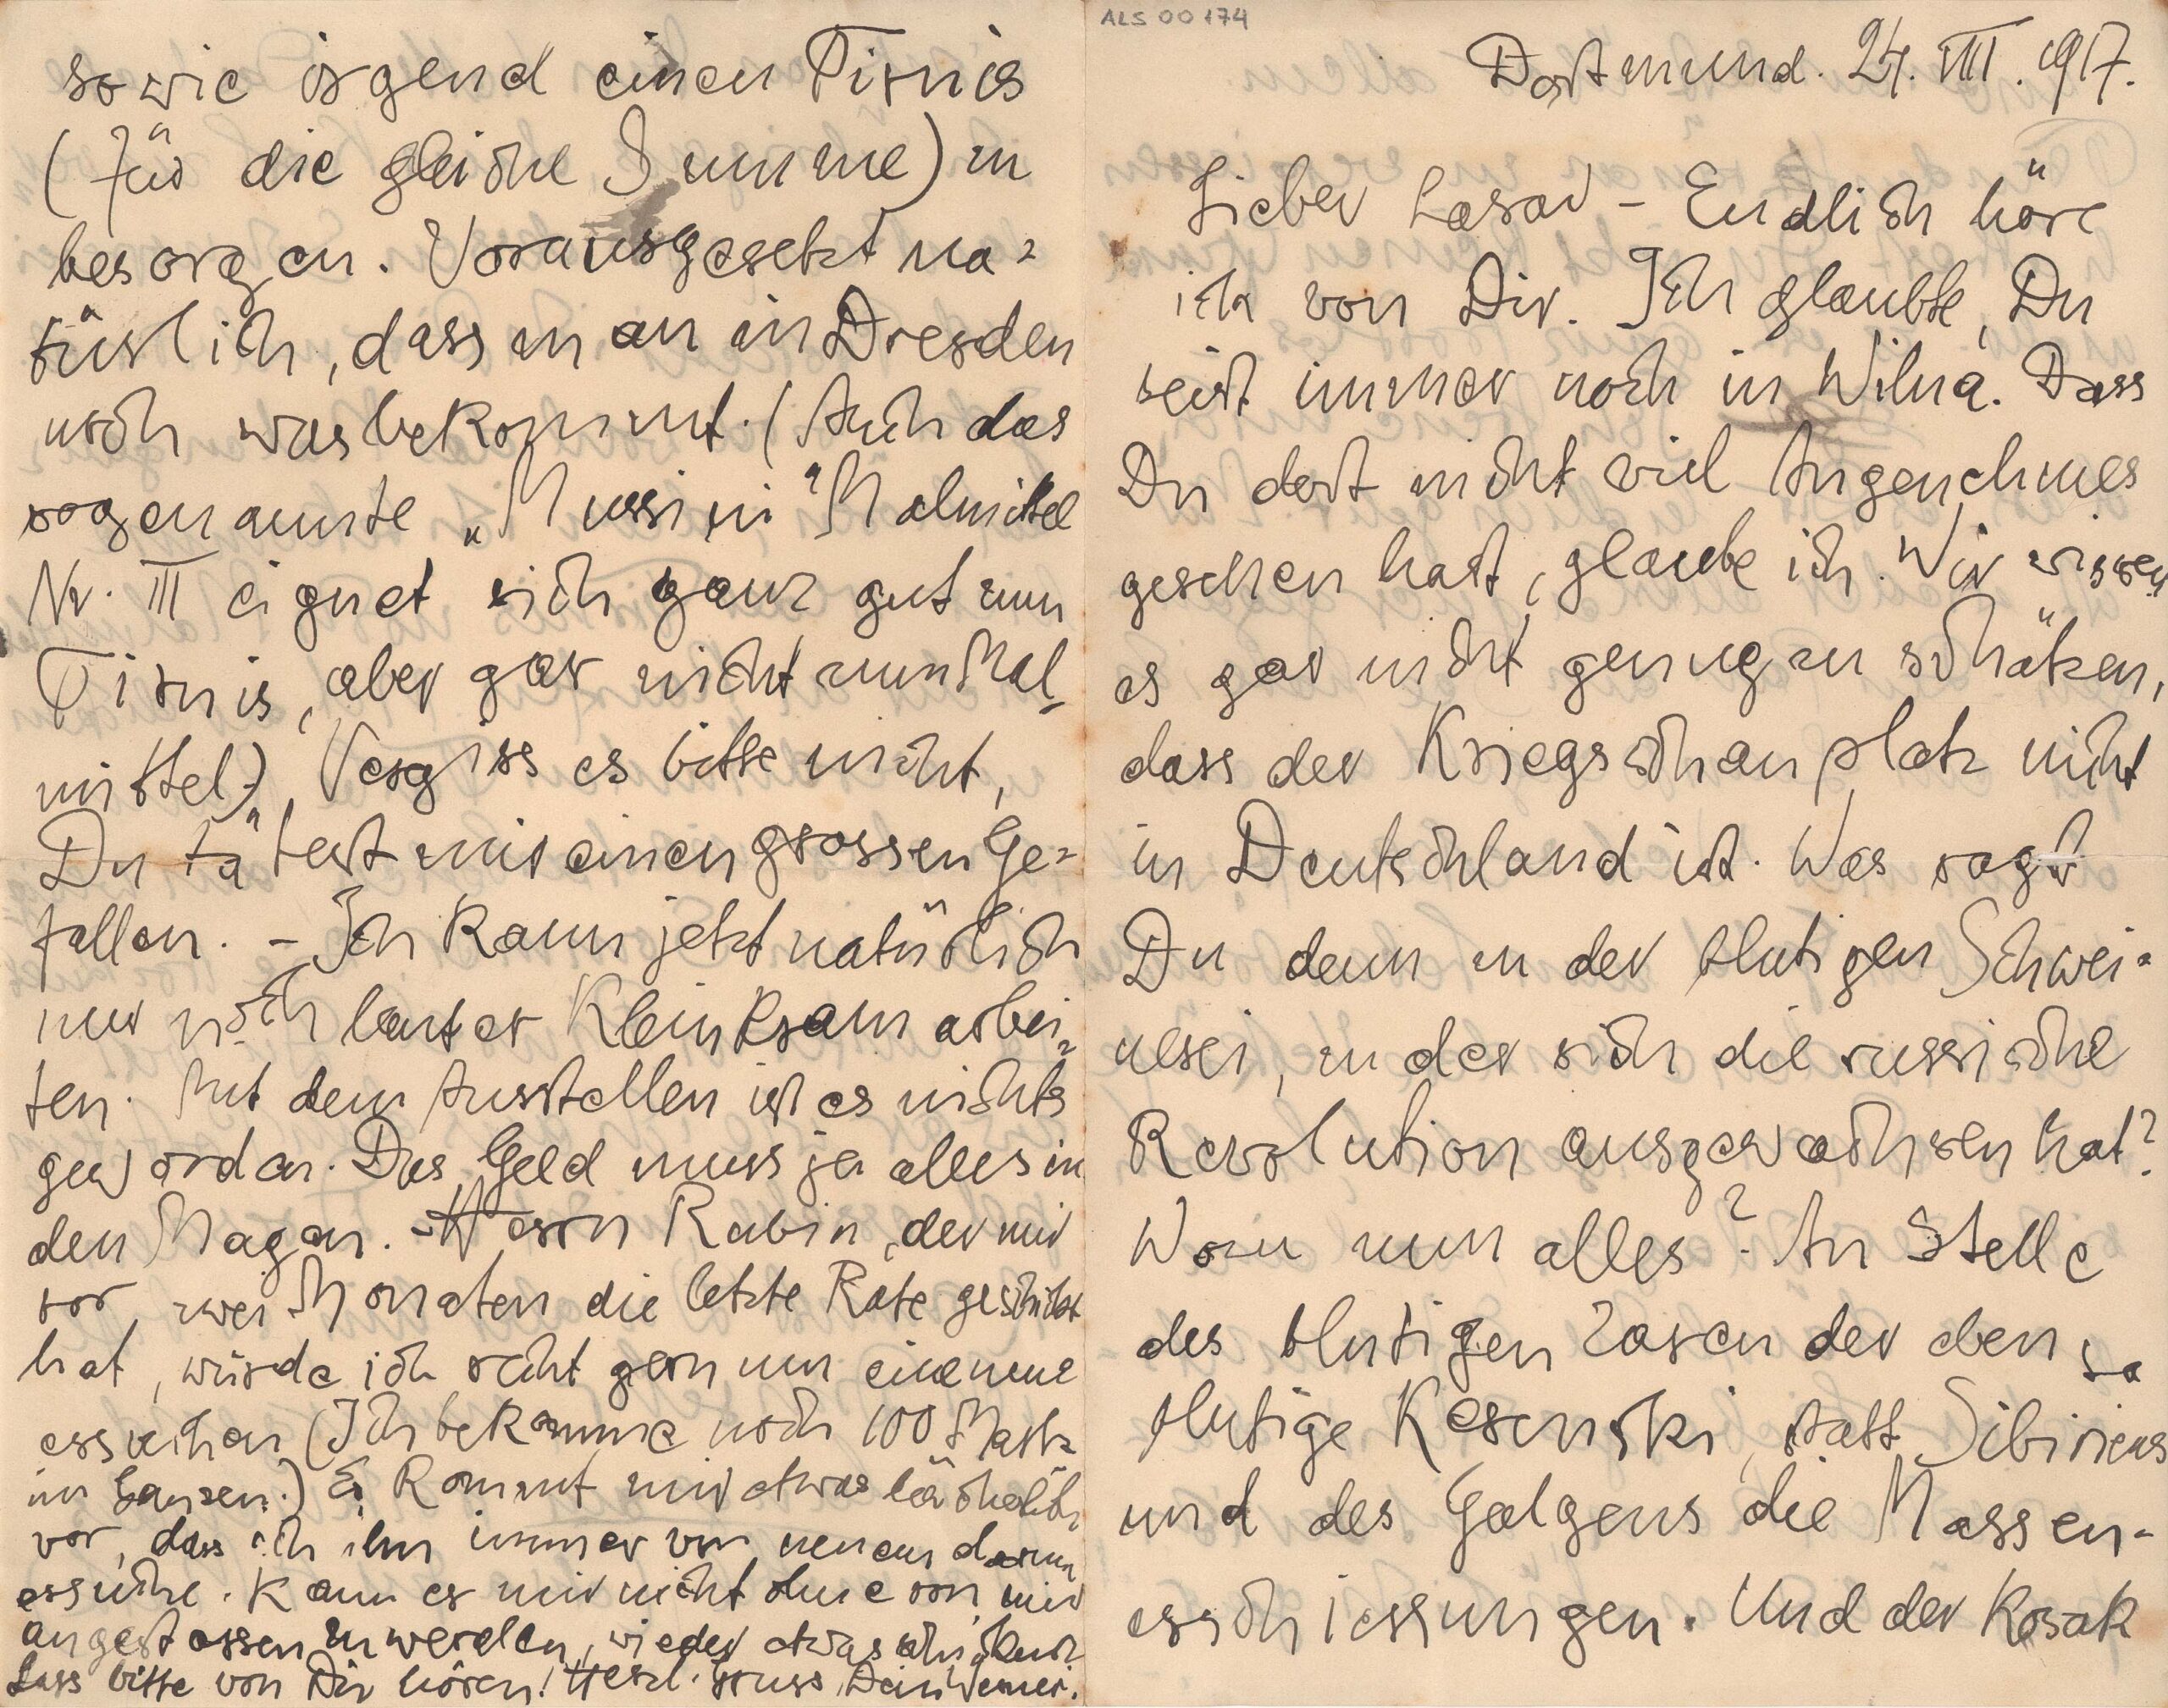 ALS 00174
Dortmund. 24. VIII. 1917.
Lieber Lasar – Endlich höre
ich von Dir. Ich glaubte, Du
seist immer noch in Wilna. Dass
Du dort nicht viel Angenehmes
gesehen hast, glaube ich. Wir wissen
es gar nicht genug zu schätzen,
dass der Kriegsschauplatz nicht
in Deutschland ist. Was sagst
Du denn zu der blutigen Schwei-
nerei, zu der sich die russische
Revolution ausgewachsen hat?
Wozu nun alles? An Stelle
des blutigen Zaren der eben so
blutige Kerenski, statt Sibiriens
und des Galgens die Massen-
erschiessungen. Und der Kosak
sowie irgend einen Firnis
(für die gleiche Summe) zu
besorgen. Vorausgesetzt na-
türlich, dass man in Dresden
noch was bekommt. (Auch das
sogenannte „Mussini" Malmittel
Nr. III eignet sich ganz gut zum
Firnis, aber gar nicht zum Mal-
mittel.) Vergiss es bitte nicht,
Du tätest mir einen grossen Ge-
fallen. – Ich kann jetzt natürlich
nur noch lauter Kleinkram arbei-
ten. Mit dem Ausstellen ist es nichts
geworden. Das Geld muss ja alles in
den Magen. – Herrn Rubin, der mir
vor zwei Monaten die letzte Rate geschickt
hat, würde ich recht gern um eine neue
ersuchen (Ich bekomme noch 100 Mark
im Ganzen.) Es kommt mir etwas lächerlich
vor, dass ich ihn immer von neuem darum
ersuche. Kann er mir nicht ohne von mir
angestossen zu werden, wieder etwas schicken?
Lass bitte von Dir hören! Herzl. Gruss Dein Werner.